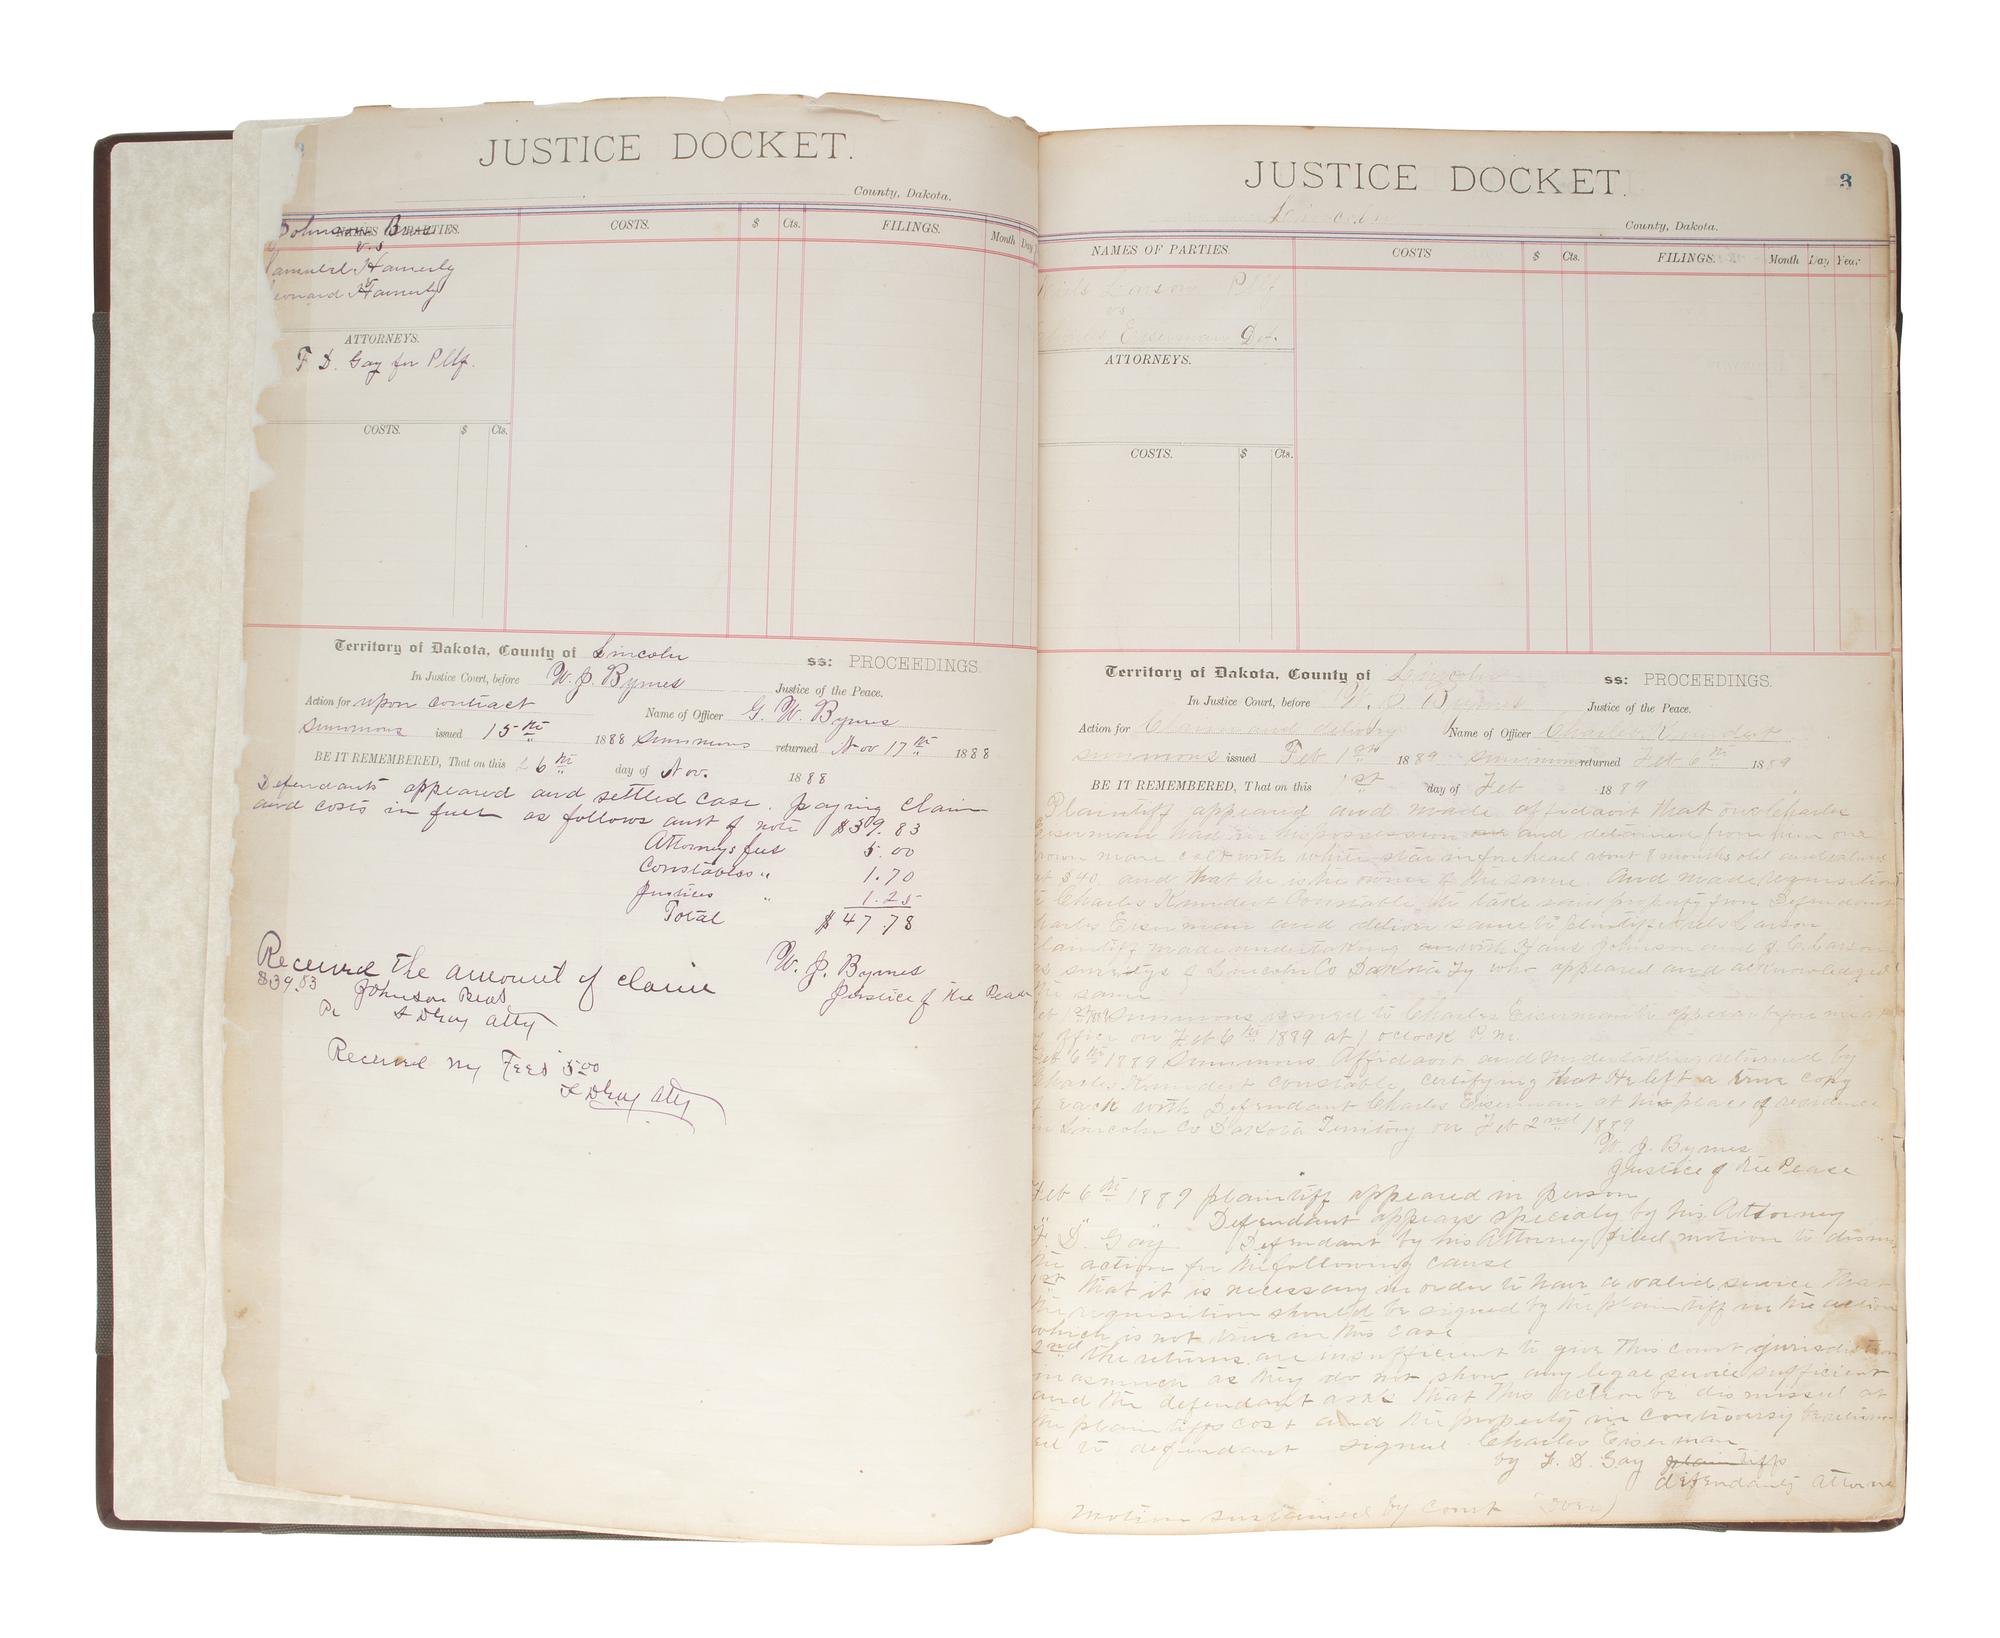 JUSTICE DOCKET.
County, Dakota.
NAMES OF PARTIES. COSTS. $ Cts. FILINGS. Month Day
Johnson Bros
vs
amuel Hamerly
eonard Hamerly
ATTORNEYS.
F D. Gay for Pltf.
COSTS. $ Cts.
Territory of Dakota, County of Lincoln ss: PROCEEDINGS.
In Justice Court, before W. J. Byrnes Justice of the Peace.
Action for upon contract Name of Officer G. W. Byrnes
summons issued 15th 1888 summons returned Nov 17th 1888
BE IT REMEMBERED, That on this 26th day of Nov. 1888
Defendants appeared and settled case. paying claim
and costs in full as follows amt of note $39.83
Attorneys fees 5.00
Constables " 1.70
Justices " 1.25
Total $47.78
W. J. Byrnes
Justice of the Peace
Received the amount of claim
$39.83 Johnson Bros
Per F D Gay atty
Received my Fees 5.00
F D Gay atty
JUSTICE DOCKET.
3
Lincoln County, Dakota.
NAMES OF PARTIES. COSTS $ Cts. FILINGS. Month Day Year
Niels Larson Pltf
vs
Charles Eiserman Def.
ATTORNEYS.
COSTS. $ Cts.
Territory of Dakota, County of Lincoln ss: PROCEEDINGS.
In Justice Court, before W. J. Byrnes Justice of the Peace.
Action for Claim and delivery Name of Officer Charles
summons issued Feb 1st 1889 summons returned Feb 6th 1889
BE IT REMEMBERED, That on this 1st day of Feb 1889
Plaintiff appeared and made affidavit that one Charles
Eiserman had in his possession and detained from him one
rown mare colt with white star in forehead about 8 months old and valued
at $40. and that he is the owner of the same. And made requisition
to Charles Constable to take said property from Defendant
Charles Eiserman and deliver same to plaintiff Niels Larson
Plaintiff made undertaking with Hans Johnson and J. C. Larson
as suretys of Lincoln Co Dakota Ty who appeared and acknowledged
the same
Feb 1st 1889 Summons issued to Charles Eiserman to appear before me at
my office on Feb 6th 1889 at 1 oclock P.m.
Feb 6th 1889 Summons Affidavit and undertaking returned by
Charles constable, certifying that He left a true copy
of each with Defendant Charles Eiserman at his place of residence
in Lincoln Co Dakota Territory on Feb 2nd 1889
W. J. Byrnes
Justice of the Peace
Feb 6th 1889 plaintiff appeared in person
Defendant appears specialy by his Attorney
F. D. Gay Defendant by his Attorney filed motion to dismiss
the action for the following cause
1st that it is necessary in order to have a valid service that
the requisition should be signed by the plaintiff in the action
which is not true in this case
2nd the returns are insufficient to give this court jurisdiction
inasmuch as they do not show any legal service sufficient
and the defendant asks that this action be dismissed at
the plaintiffs cost and the property in controversy be return
ed to defendant signed Charles Eiserman
by F. D. Gay plaintiffs
defendants attorne
Motion sustained by Court (over)